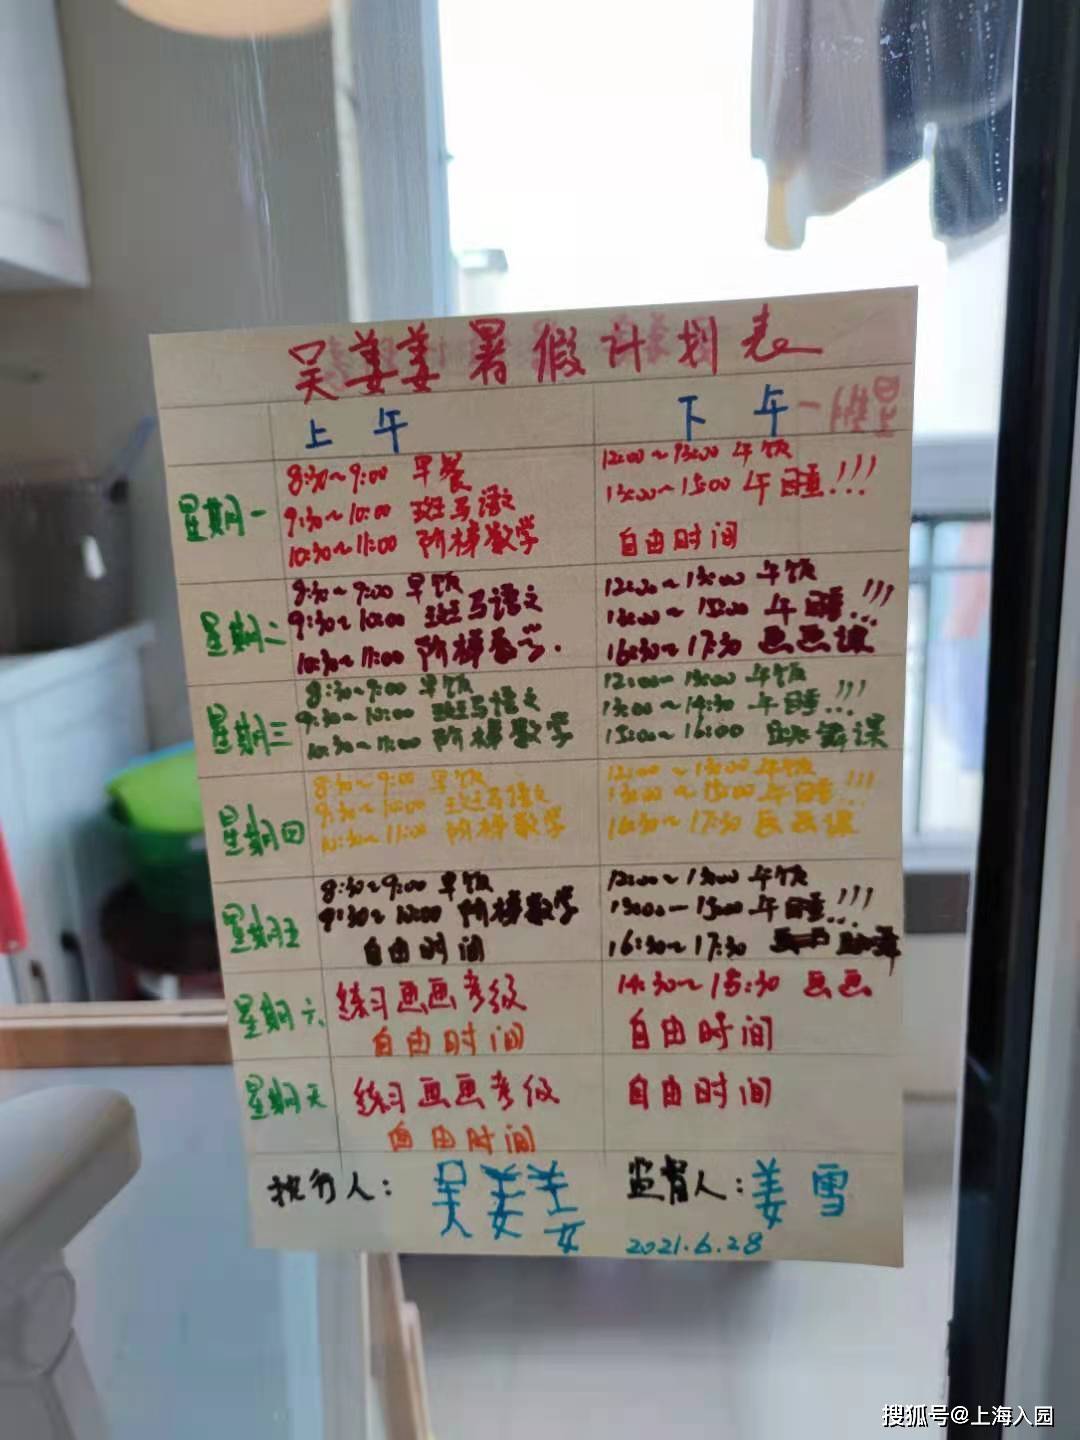 吴姜姜暑假计划表
上午 下午
星期一
8:30~9:00 早餐
9:30~10:00 斑马语文
10:30~11:00 阶梯数学
12:00~13:00 午饭
13:00~15:00 午睡!!!
自由时间
星期二
8:30~9:00 早饭
9:30~10:00 斑马语文
10:30~11:00 阶梯数学.
12:00~13:00 午饭
13:00~15:00 午睡!!!
16:30~17:30 画画课
星期三
8:30~9:00 早饭
9:30~10:00 斑马语文
10:30~11:00 阶梯数学
12:00~13:00 午饭
13:00~14:30 午睡!!!
15:00~16:00 课
星期四
8:30~9:00 早饭
9:30~10:00 斑马语文
10:30~11:00 阶梯数学
12:00~13:00 午饭
13:00~15:00 午睡!!!
16:30~17:30 画画课
星期五
8:30~9:00 早饭
9:30~10:00 阶梯数学
自由时间
12:00~13:00 午饭
13:00—15:00 午睡!!!
16:30~17:30
星期六
练习画画考级
自由时间
14:30~15:30 画画
自由时间
星期天
练习画画考级
自由时间
自由时间
执行人: 吴姜姜
监督人:姜雪
2021.6.28
搜狐号@上海入园